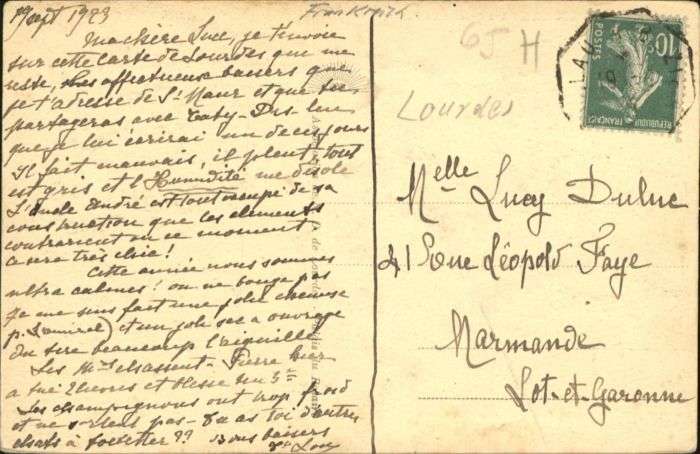 Sept 1923
Ma chère Luce, je t'envoie
sur cette carte de Lourdes qui me
reste, les affectueux baisers que
je t'adresse de St Maur et que tu
partageras avec Caty - Dis-lui
que je lui écrirai un de ces jours
Il fait mauvais, il pleut tout
est gris et l'Humidité me désole
L'Oncle André est tout occupé de sa
construction que les éléments
contrarient en ce moment
ce sera très chic!
Cette année nous sommes
ultra calmes! on ne bouge pas
Je me suis fait une jolie chemise
et un joli sac a ouvrage
On tire beaucoup l'aiguille
Les Mrs chassent - Pierre hier
a tué 2 lievres et blessé un 3
Les champignons ont trop froid
et ne sortent pas - Tu as toi d'autres
chats à fouetter ?? Bons baisers
65 H
Lourdes
RÉPUBLIQUE FRANÇAISE
POSTES
10c
Melle Lucy Duluc
41 Rue Léopold Faye
Marmande
Lot-et-Garonne